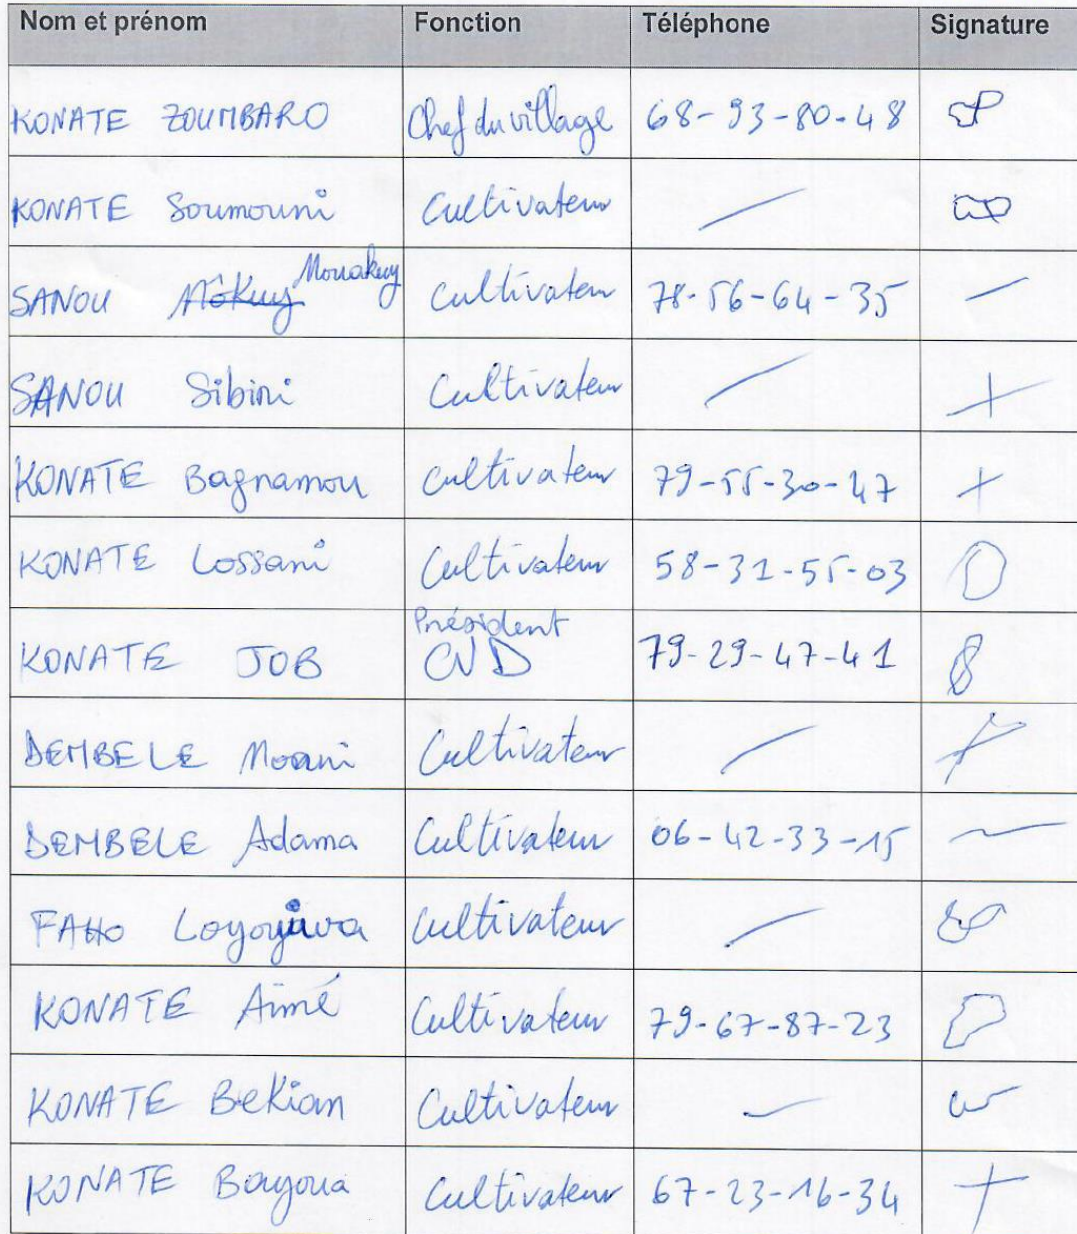 Nom et prénom Fonction Téléphone Signature
KONATE ZOUMBARO Chef du village 68-93-80-48
KONATE Soumouni Cultivateur
SANOU Môkuy Mouakuy Cultivateur 78-56-64-35
SANOU Sibiri Cultivateur
KONATE Bagnamou Cultivateur 79-55-30-47
KONATE Lossani Cultivateur 58-31-55-03
KONATE JOB Président CVD 79-29-47-41
DEMBELE Cultivateur
DEMBELE Adama Cultivateur 06-42-33-15
FAHO Cultivateur
KONATE Aimé Cultivateur 79-67-87-23
KONATE Bekian Cultivateur
KONATE Bayoua Cultivateur 67-23-16-34